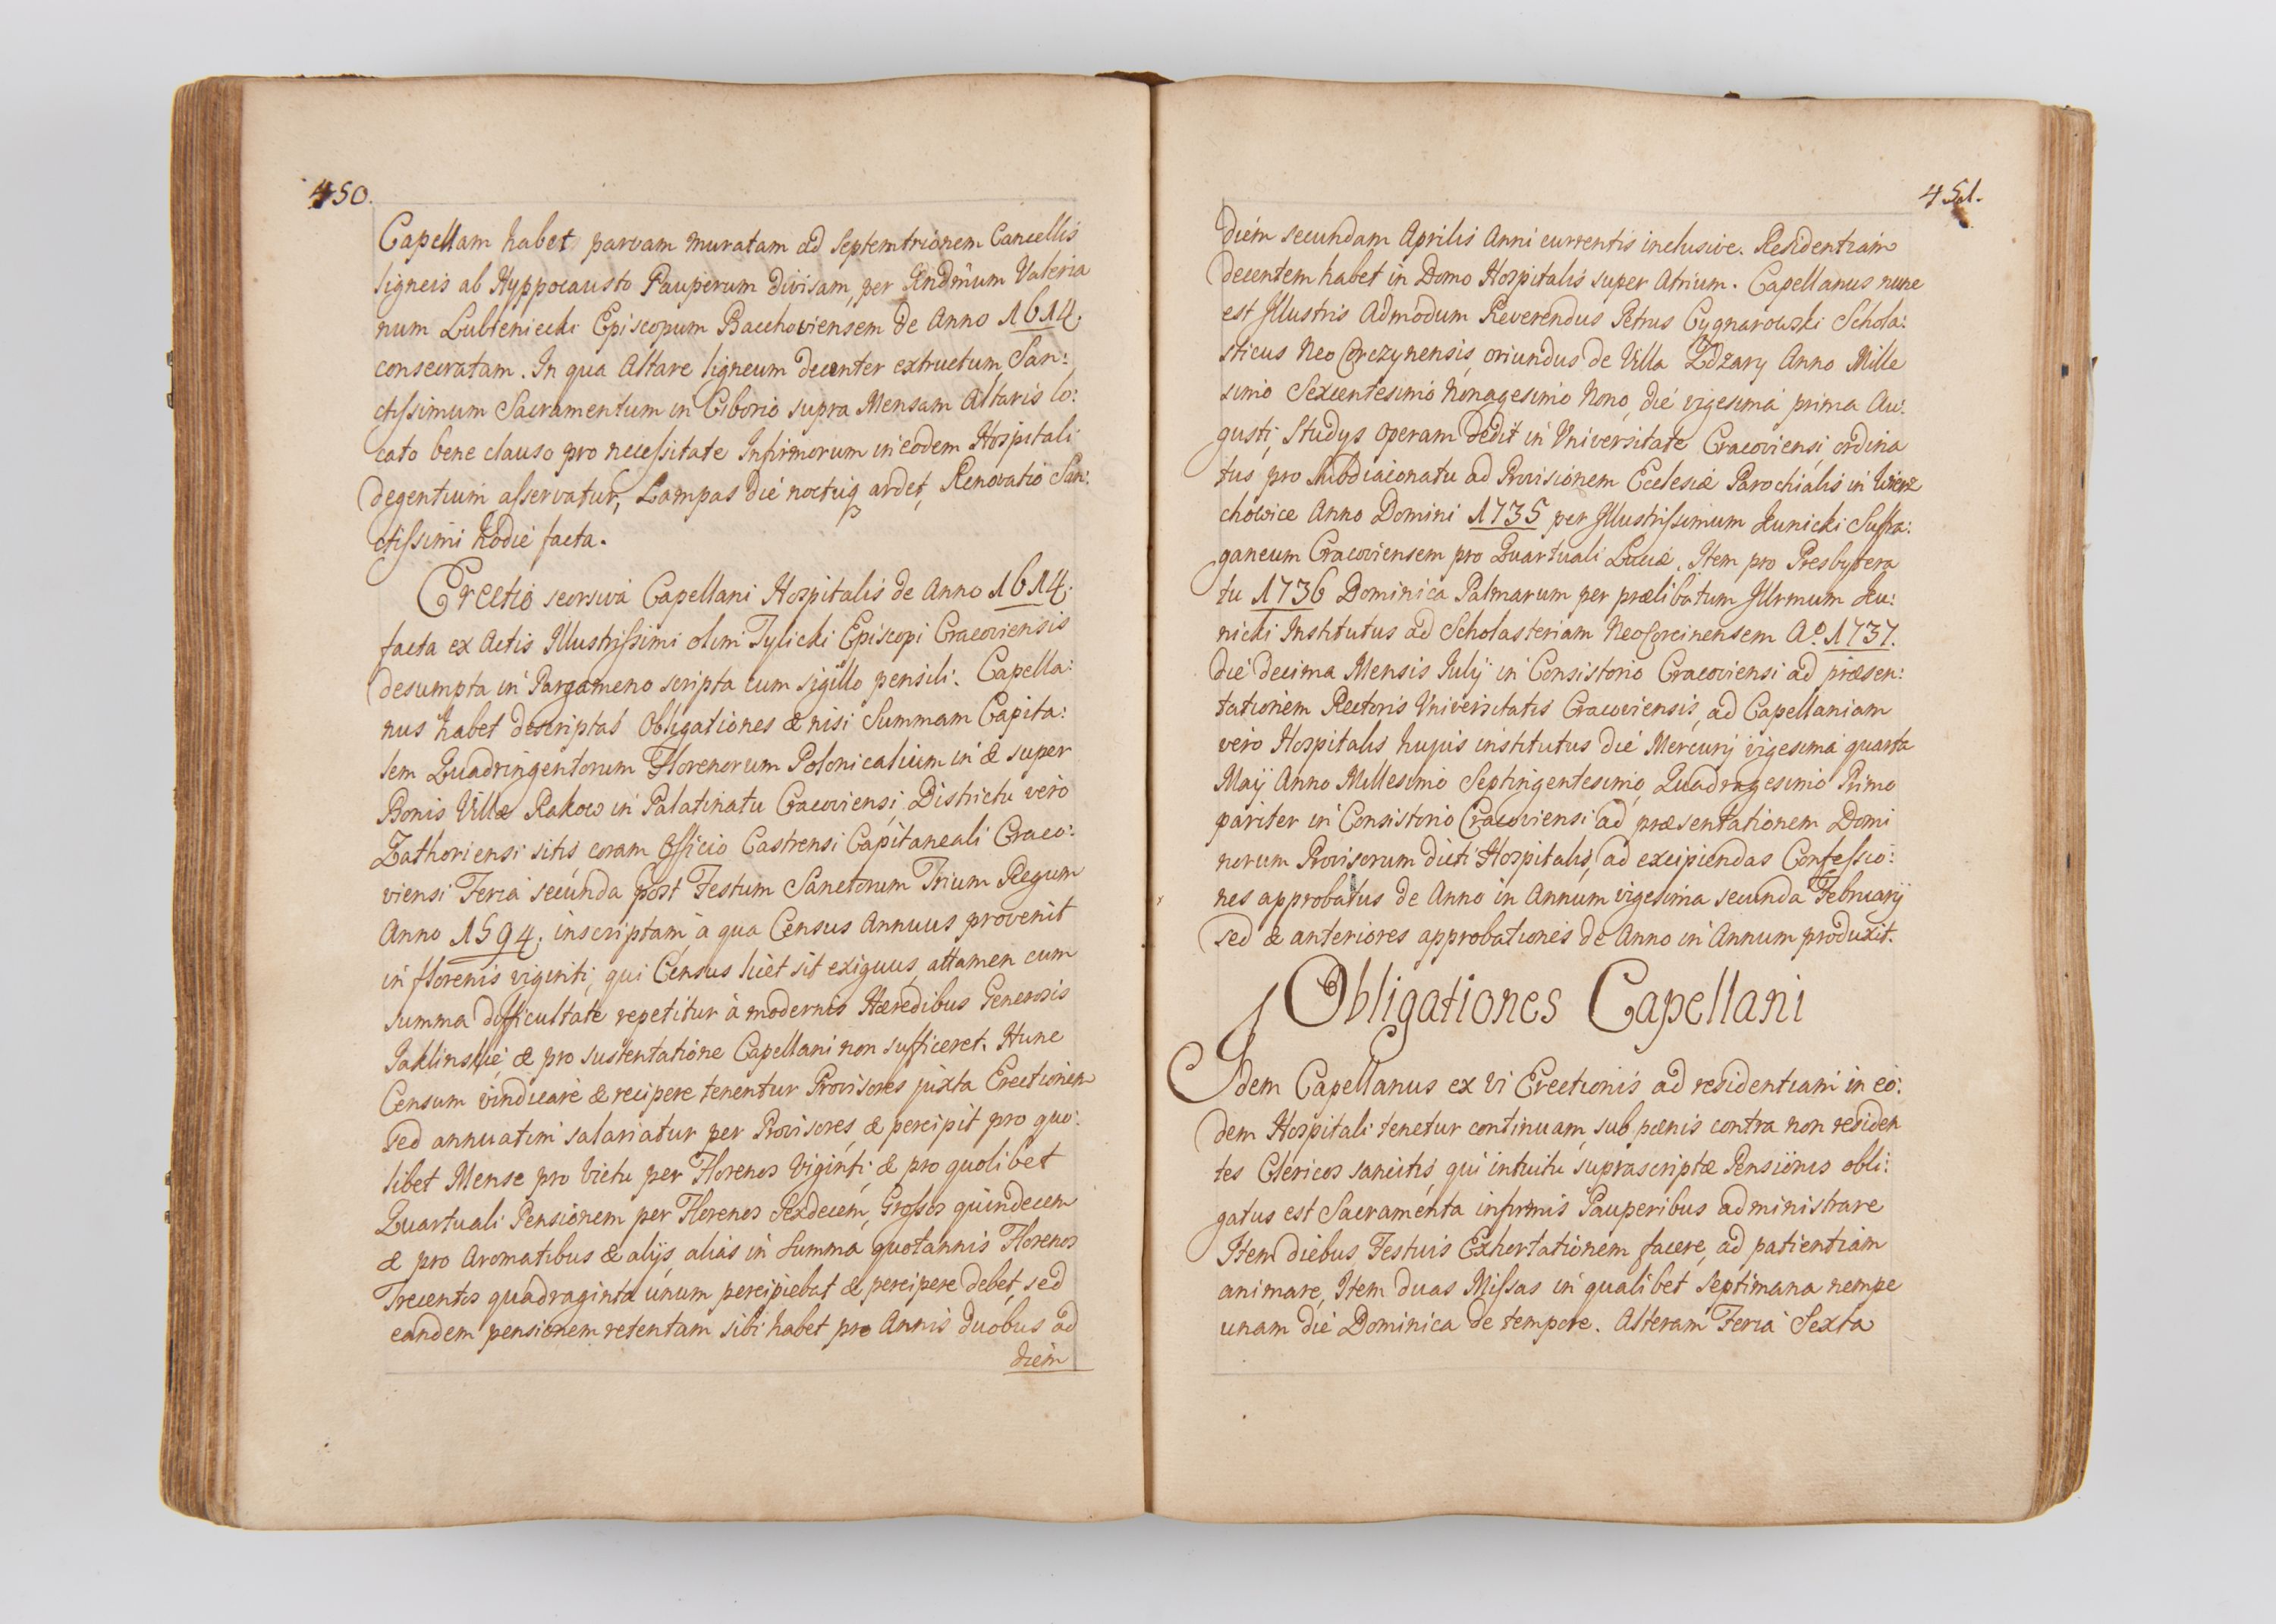 450.
Capellam habet parvam muratam ad Septemtrionem Cancellis
ligneis ab Hyppocausto Pauperum divisam, per Rndmum Valeria
num Lubieniecki Episcopum Bacchoviensem de Anno 1614.
consecratam. In qua Altare ligneum decenter extructum San:
ctissimum Sacramentum in Ciborio supra Mensam Altaris lo:
cato bene clauso pro necessitate Infirmorum in eodem Hospitali
degentium asservatur, Lampas die noctuq ardet, Renovatio San:
ctissimi hodie facta.
Erectio seorsiva Capellani Hospitalis de Anno 1614.
facta ex Actis Illustrissimi olim Tylicki Episcopi Cracoviensis
desumpta in Pargameno scripta cum sigillo pensili. Capella:
nus habet descriptas Obligationes & nisi Summam Capita:
lem Quadringentorum Florenorum Polonicalium in & super
Bonis Villæ Rakow in Palatinatu Cracoviensi, Districtu vero
Zathoriensi sitis coram Officio Castrensi Capitaneali Craco:
viensi Feria secunda post Festum Sanctorum Trium Regum
Anno 1594. inscriptam, à qua Census Annuus provenit
in florenis viginti, qui Census licet sit exiguus, attamen cum
summa difficultate repetitur à modernis Hæredibus Generosis
Jaklinskie, & pro sustentatione Capellani non sufficeret. Hunc
Censum vindicare & recipere tenentur Provisores juxta Erectionem
sed annuatim salariatur per Provisores, & percipit pro quo:
libet Mense pro Victu per Florenos Viginti, & pro quolibet
Quartuali Pensionem per Florenos Sexdecem, Grossos quindecem
& pro Aromatibus & alijs, alias in Summa quotannis Florenos
Trecentos quadraginta unum percipiebat & percipere debet, sed
eandem pensionem retentam sibi habet pro Annis duobus ad
diem
451.
diem secundam Aprilis Anni currentis inclusive. Residentiam
decentem habet in Domo Hospitalis super Atrium. Capellanus nunc
est Illustris Admodum Reverendus Petrus Cygnarowski Schola:
sticus Neo Corczynensis, oriundus de Villa Zdzary Anno Mille
simo Sexcentesimo Nonagesimo Nono, die vigesima prima Au:
gusti, Studys operam dedit in Universitate Cracoviensi, ordina
tus pro Subdiaconatu ad Provisionem Ecclesiæ Parochialis in Wierz
chowice Anno Domini 1735 per Illustrissimum Kunicki Suffra:
ganeum Cracoviensem pro Quartuali Luciæ. Item pro Presbytera
tu 1736 Dominica Palmarum per prælibatum Illrmum Ku:
nicki Institutus ad Scholasteriam Neocorcinensem Aº 1737.
die decima Mensis Julij in Consistorio Cracoviensi ad præsen:
tationem Rectoris Universitatis Cracoviensis, ad Capellaniam
vero Hospitalis hujus institutus die Mercurij vigesima quarta
Maij Anno Millesimo Septingentesimo, Quadragesimo Primo
pariter in Consistorio Cracoviensi ad præsentationem Domi
norum Provisorum dicti Hospitalis, ad excipiendas Confessio:
nes approbatus de Anno in Annum vigesima secunda Februarij
sed & anteriores approbationes de Anno in Annum produxit.
Obligationes Capellani
Idem Capellanus ex vi Erectionis ad residentiam in eo:
dem Hospitali tenetur continuam, sub pœnis contra non residen
tes Clericos sancitis, qui intuitu suprascriptæ Pensionis obli:
gatus est Sacramenta infirmis Pauperibus administrare
Item diebus Festivis Exhortationem facere, ad patientiam
animare, Item duas Missas in qualibet Septimana nempe
unam die Dominica de tempore. Alteram Feria Sexta